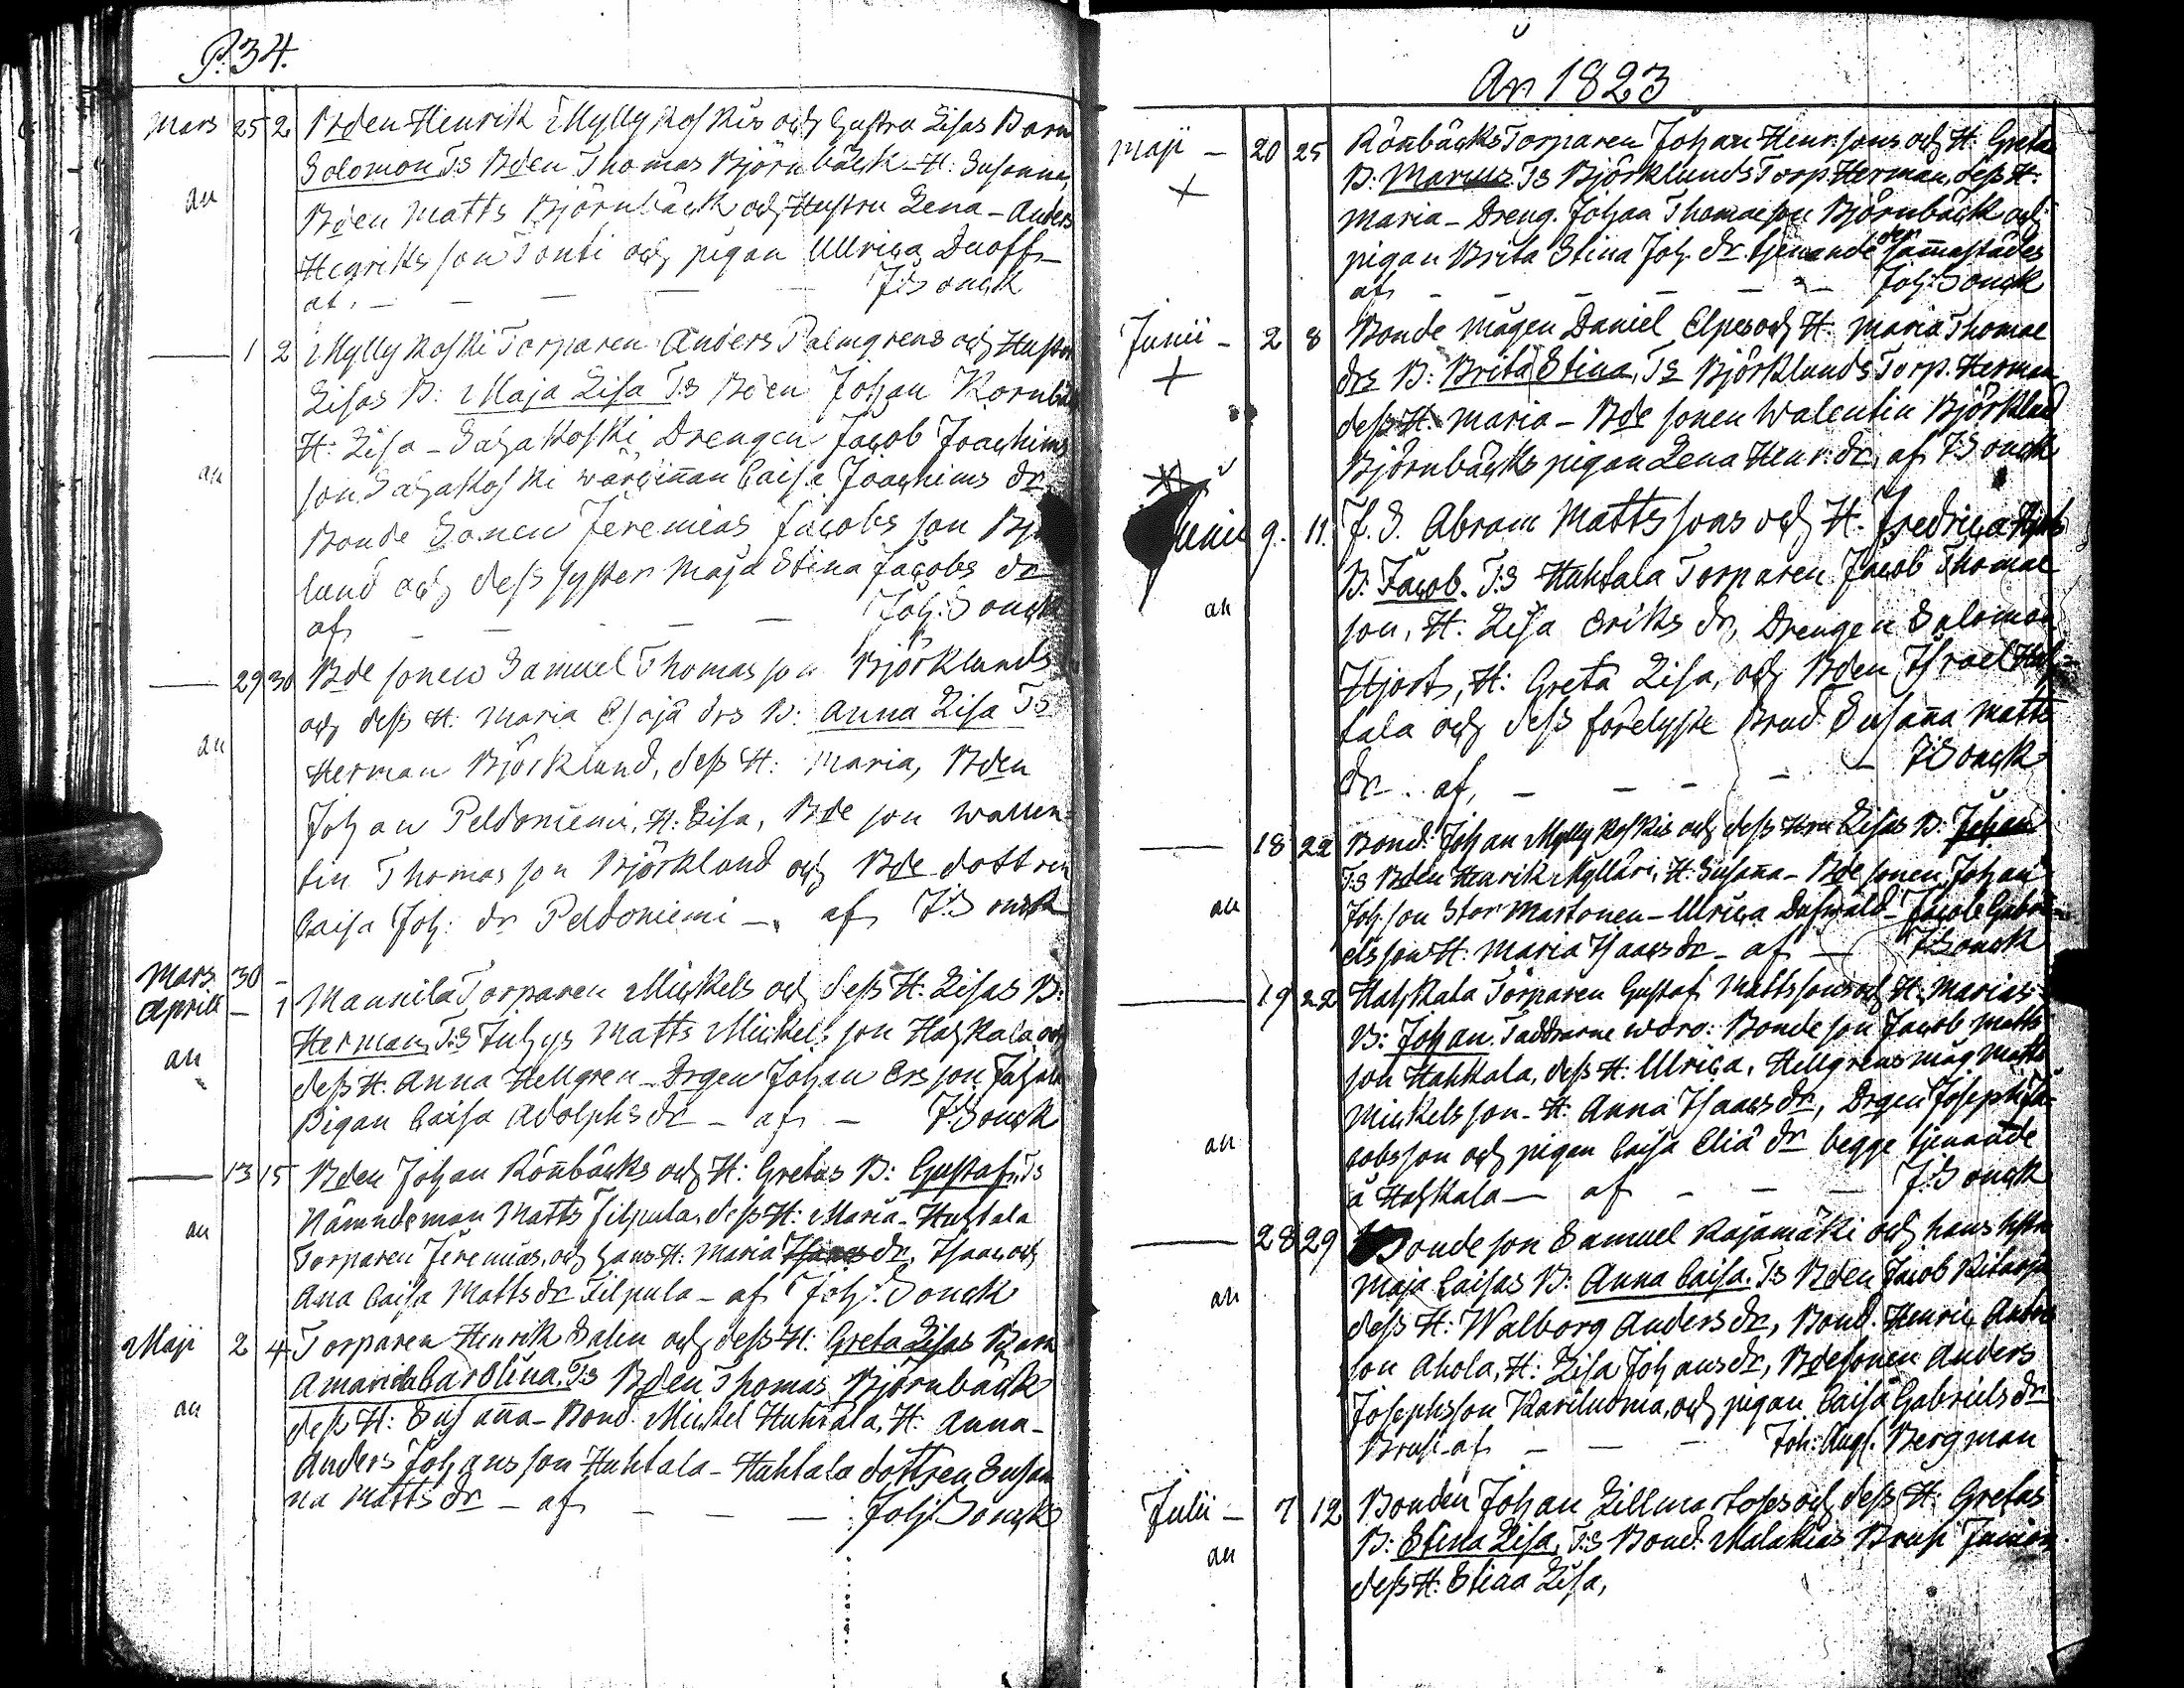 P. 34.
Mars 25 2 Bden Henrik Myllykoskis och hustru Lisas Barn
Solomon, T:s Bden Thomas Björnbäck - H: Susanna,
an Bden Matts Björnbäck och Hustru Lena - Anders
Henriksson Tonti och pigan Ullrica Duoff
af. - - - - - J: Sonck
— 1 2 Myllykoski Torparen Anders Palmgrens och Hustru
Lisas B: Maja Lisa T:s Bden Johan
H: Lisa - Sahakoski, Drengen Jacob Joachims
an son Sahakoski wärdinnan Caisa Joachims dr
Bonde Sonen Jeremias Jacobs son
lund och dess syster Maja Stina Jacobs dr
af - - - - - Joh: Sonck
— 29 30 Bde sonen Samuel Thomasson Björklunds
och dess H: Maria Esajæ drs B: Anna Lisa T:s
an Herman Björklund, dess H: Maria, Bden
Johan Peldoniemi, H: Lisa, Bde son Wallen-
tin Thomasson Björklund och Bde dottren
Caisa Joh: dr Peldoniemi - af J: Sonck
Mars 30 -
Aprill - 1 Mannila Torparen Mickels och dess H: Lisas B:
an Herman, T:s Inhys Matts Mickelsson Hahkala och
dess H: Anna Hellgren - Drgen Johan Ersson
Pigan Caisa Adolphs dr - af - J: Sonck
— 13 15 Bden Johan Rönnbäcks och H: Gretas B: Gustaf, T:s
an Nämndeman Matts Filpula, dess H: Maria - Huhtala
Torparen Jeremias, och hans H: Maria dr, Isaac och
Ana Caisa Matts dr Filpula - af Joh: Sonck
Maji 2 4 Torparen Henrik Salin och dess H: Greta Lisas Barn
Amanda Carolina, T:s Bden Thomas Björnback
an dess H: Susanna - Bond. Mickel Huhtala, H: Anna -
Anders Johansson Huhtala - Huhtala dottren Susan
na Matts dr - af - - - Joh: Sonck
År 1823
Maji - 20 25 Rönnbäcks Torparen Johan Henr:sons och H: Greta
+ B: Marcus T:s Björklunds Torp. Herman, dess H:
Maria - Dreng. Johan Thomæson Björnbäck och
pigan Brita Stina Joh. dr. tjenande der sammastädes
af - - - - - - Joh: Sonck
Junii - 2 8 Bonde Mågen Daniel Elpes och H: Maria Thomæ
+ drs B: Brita Stina, T:s Björklunds Torp. Herman
dess H: Maria - Bde sonen Walentin Björklund
Björnbäcks pigan Lena Henr: dr, af J: Sonck
Junii 9. 11. F. S. Abram Mattssons och H: Fredrica
B: Jacob. T:s Huhtala Torparen Jacob Thomæ
an son, H: Lisa Eriks dr, Drengen Salomon
Hjort, H: Greta Lisa, och Bden Israel Huh-
tala och dess förelyste Brud Susanna Matts
dr. af, - - - - J: Sonck
— 18 22 Bond: Johan Myllykoskis och dess Hru Lisas B: Johan
T:s Bden Henrik Mylläri, H: Susanna - Bde sonen Johan
an Joh: son Stor Martonen - Ulrica - Jacob Gabri-
elsson H: Maria Isaacs dr - af - J: Sonck
— 19 22 Hahkala Torparen Gustaf Mattssons och H: Marias
B: Johan. Faddrarne woro: Bonde son Jacob Matts
son Hahkala, dess H: Ulrica, Hellgrens måg Matts
Mickelsson - H: Anna Isaacs dr, Drgen Joseph Ja-
an cobsson och pigan Caisa Eliæ dr begge tjenande
å Hahkala - af - - - J: Sonck
— 28 29 Bonde son Samuel Rajamäki och hans hstru
Maja Caisas B: Anna Caisa. T:s Bden Jacob
an dess H: Walborg Anders dr, Bond. Henric Anders
son Ahola, H: Lisa Johans dr, Bde sonen Anders
Josephsson Kariluoma, och pigan Caisa Gabriels dr
Brusi - af - - - Joh: Aug. Bergman
Julii - 7 12 Bonden Johan och dess H: Gretas
an B: Stina Lisa, T:s Bond. Malakias Brusi Junior
dess H: Stina Lisa,